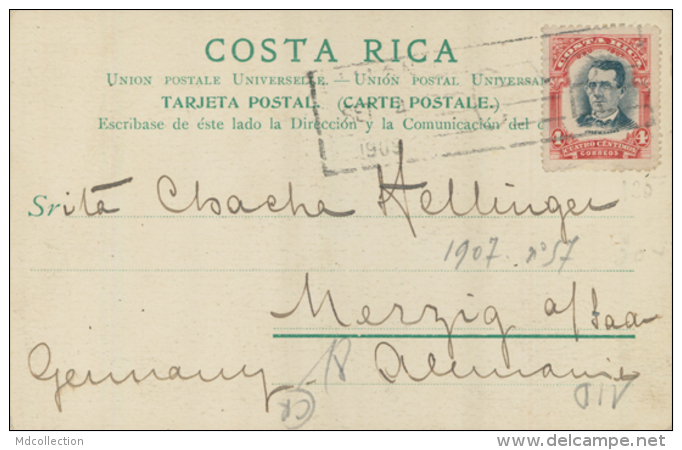 COSTA RICA
UNION POSTALE UNIVERSELLE. — UNIÓN POSTAL UNIVERSAL
TARJETA POSTAL. (CARTE POSTALE.)
Escribase de éste lado la Dirección y la Comunicación del
1909
COSTA RICA
4 4
CUATRO CÉNTIMOS
CORREOS
Srita Chacha Hellinger
1907. nº 57
Merzig a/Saar
Germany Alemania
Mdcollection
www.delcampe.net